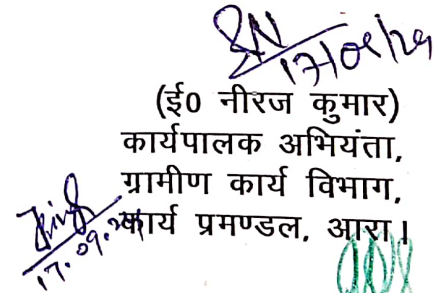 17/09/24
(ई0 नीरज कुमार)
कार्यपालक अभियंता,
ग्रामीण कार्य विभाग,
कार्य प्रमण्डल, आरा।
17.09.24